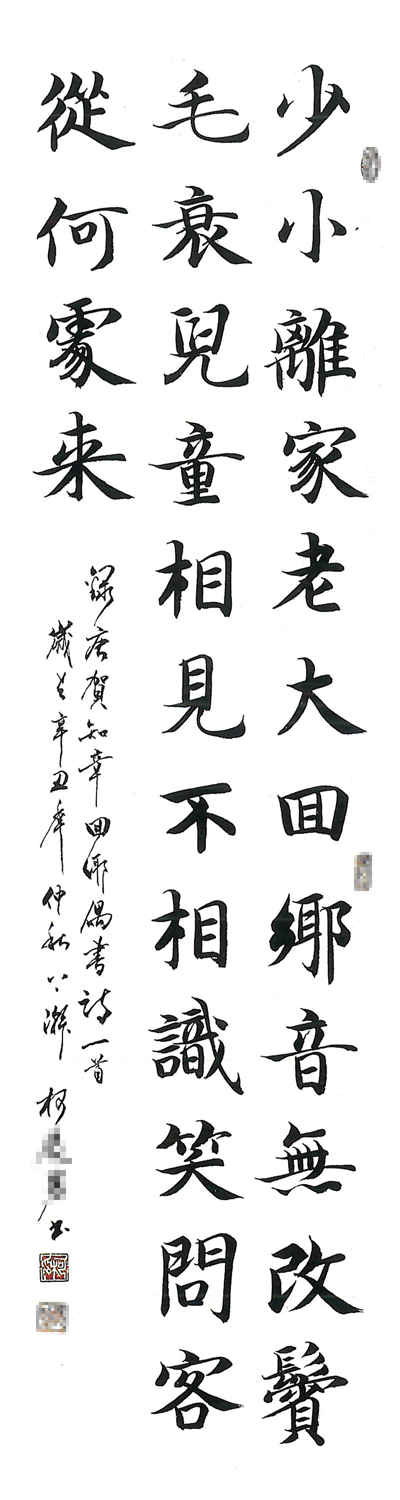 少小離家老大囬鄉音無改鬢
毛衰兒童相見不相識笑問客
從何處来
錄唐賀知章囬鄉偶書詩一首
歲在辛丑年仲秋下澣 柯
書